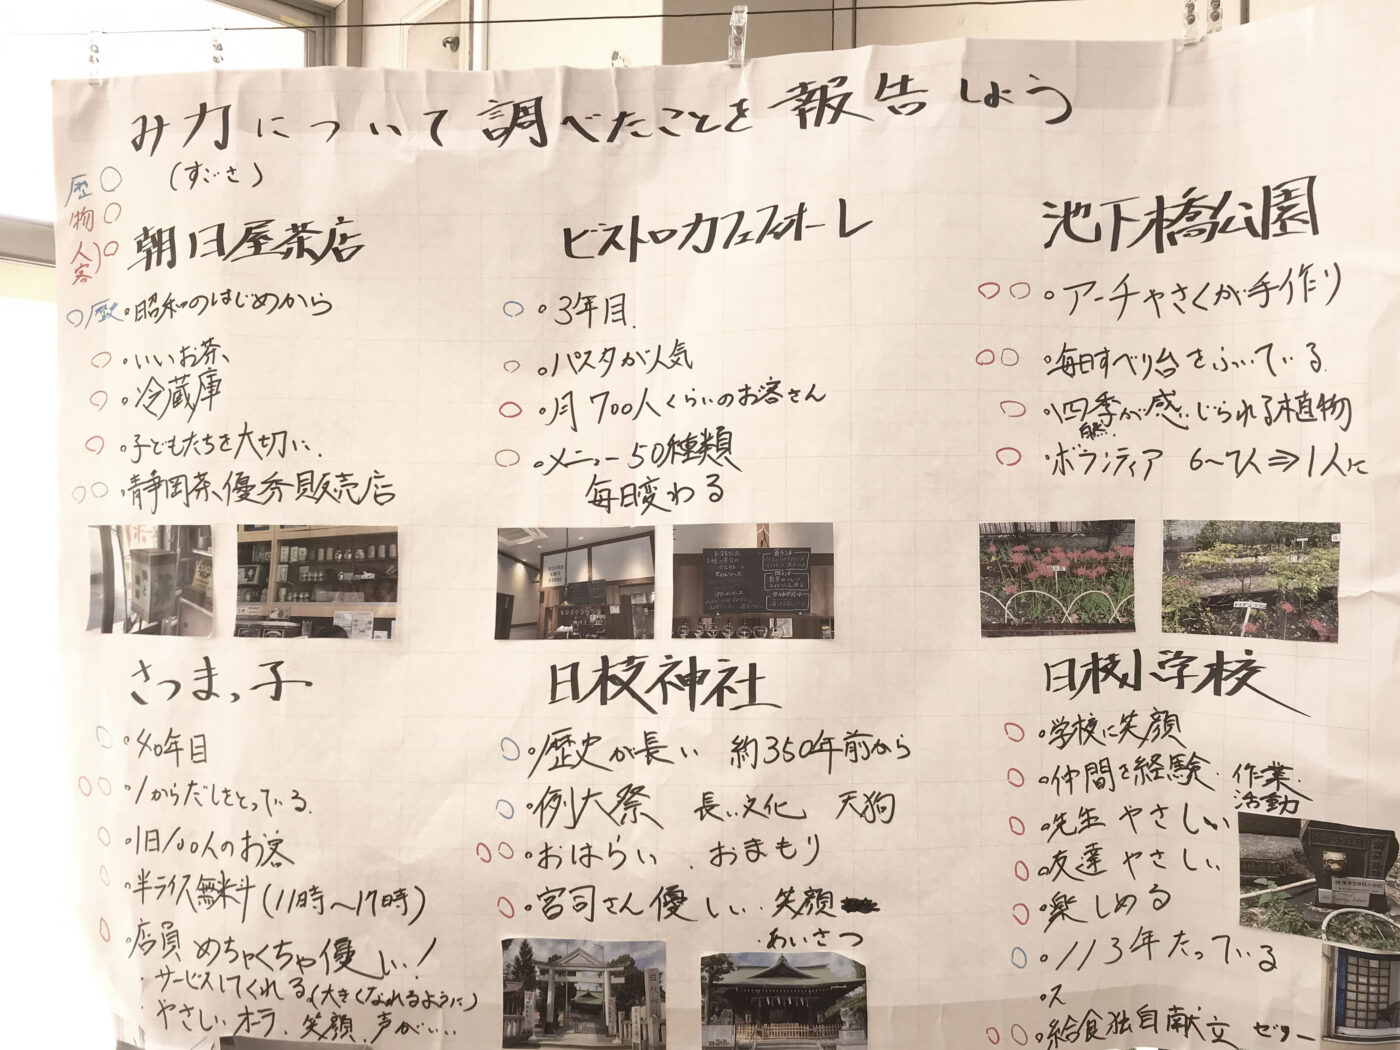 み力について調べたことを報告しよう
(すごさ)
歴○
物○
人○
客
朝日屋茶店
○歴史・昭和のはじめから
○・いいお茶、
○・冷蔵庫
○・子どもたちを大切に.
○○・静岡茶、優秀販売店
ビストロカフェフィオーレ
○・3年目.
○・パスタが人気
○・月700人くらいのお客さん
○・メニュー50種類
毎日変わる
池下橋公園
○○・アーチやさくが手作り
○○・毎日すべり台をふいている.
○・四季が感じられる植物
自然.
○・ボランティア 6〜7人⇒1人に
さつまっ子
○・40年目
○○・1からだしをとっている.
○・1日100人のお客
○・半ライス無料(11時〜17時)
○・店員めちゃくちゃ優しい!
・サービスしてくれる(大きくなれるように)
・やさしいオーラ、笑顔、声がい…
日枝神社
○・歴史が長い 約350年前から
○・例大祭 長い文化 天狗
○○・おはらい、おまもり
○・宮司さん優しい・笑顔
・あいさつ
日枝小学校
○・学校に笑顔
○・仲間を経験. 作業.
活動
○・先生やさしい
○・友達やさしい
○・楽しめる
○・113年たっている
・ス
○○・給食独自献立 ゼリー